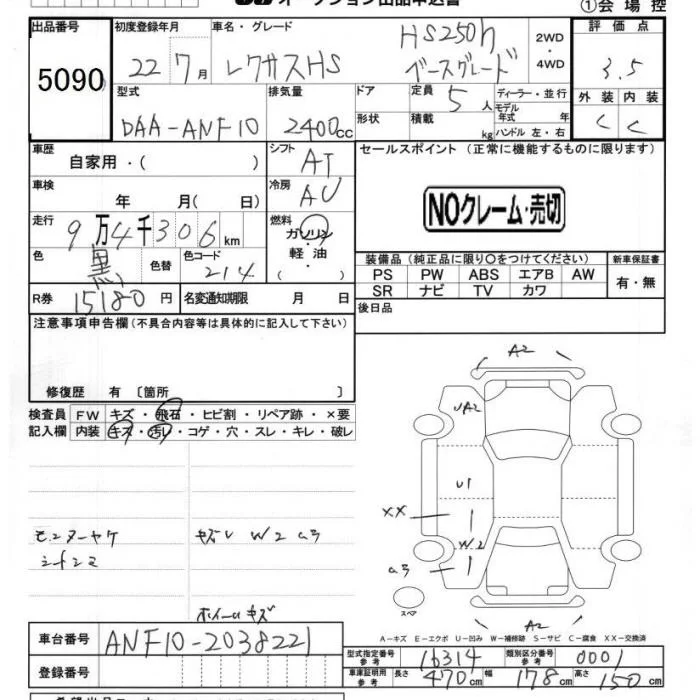 ①会 場 控
出品番号
5090
初度登録年月
22 7月
車名・グレード
レクサスHS
HS250h
ベースグレード
2WD
・
4WD
評価点
3.5
型式
DAA-ANF10
排気量
2400cc
ドア
形状
定員 5人
積載 kg
ディーラー・並行
モデル
年式 年
ハンドル 左・右
外装 内装
C C
車歴
自家用・( )
シフト
AT
車検
年 月( 日)
冷房
AC
走行
9万4千306km
燃料
ガソリン
軽 油
色
黒
色替
色コード
214
R券 15180 円
名変通知期限 月 日
セールスポイント (正常に機能するものに限ります)
NOクレーム・売切
装備品(純正品に限り○をつけてください)
PS PW ABS エアB AW
SR ナビ TV カワ
新車保証書
有・無
後日品
注意事項申告欄(不具合内容等は具体的に記入して下さい)
修復歴 有 〔箇所 〕
検査員
記入欄
FW キズ・飛石・ヒビ割・リペア跡・×要
内装 キズ・汚レ・コゲ・穴・スレ・キレ・破レ
シートシミ
キズU W2
ホイールキズ
A2
UA2
U1
XX
W2
スペア
A2
A-キズ E-エクボ U-凹み W-補修跡 S-サビ C-腐食 XX-交換済
車台番号
ANF10-2038221
登録番号
型式指定番号
参考
16314
類別区分番号
参考
0001
車庫証明用
参考
長さ 470cm
幅 178cm
高さ 150cm